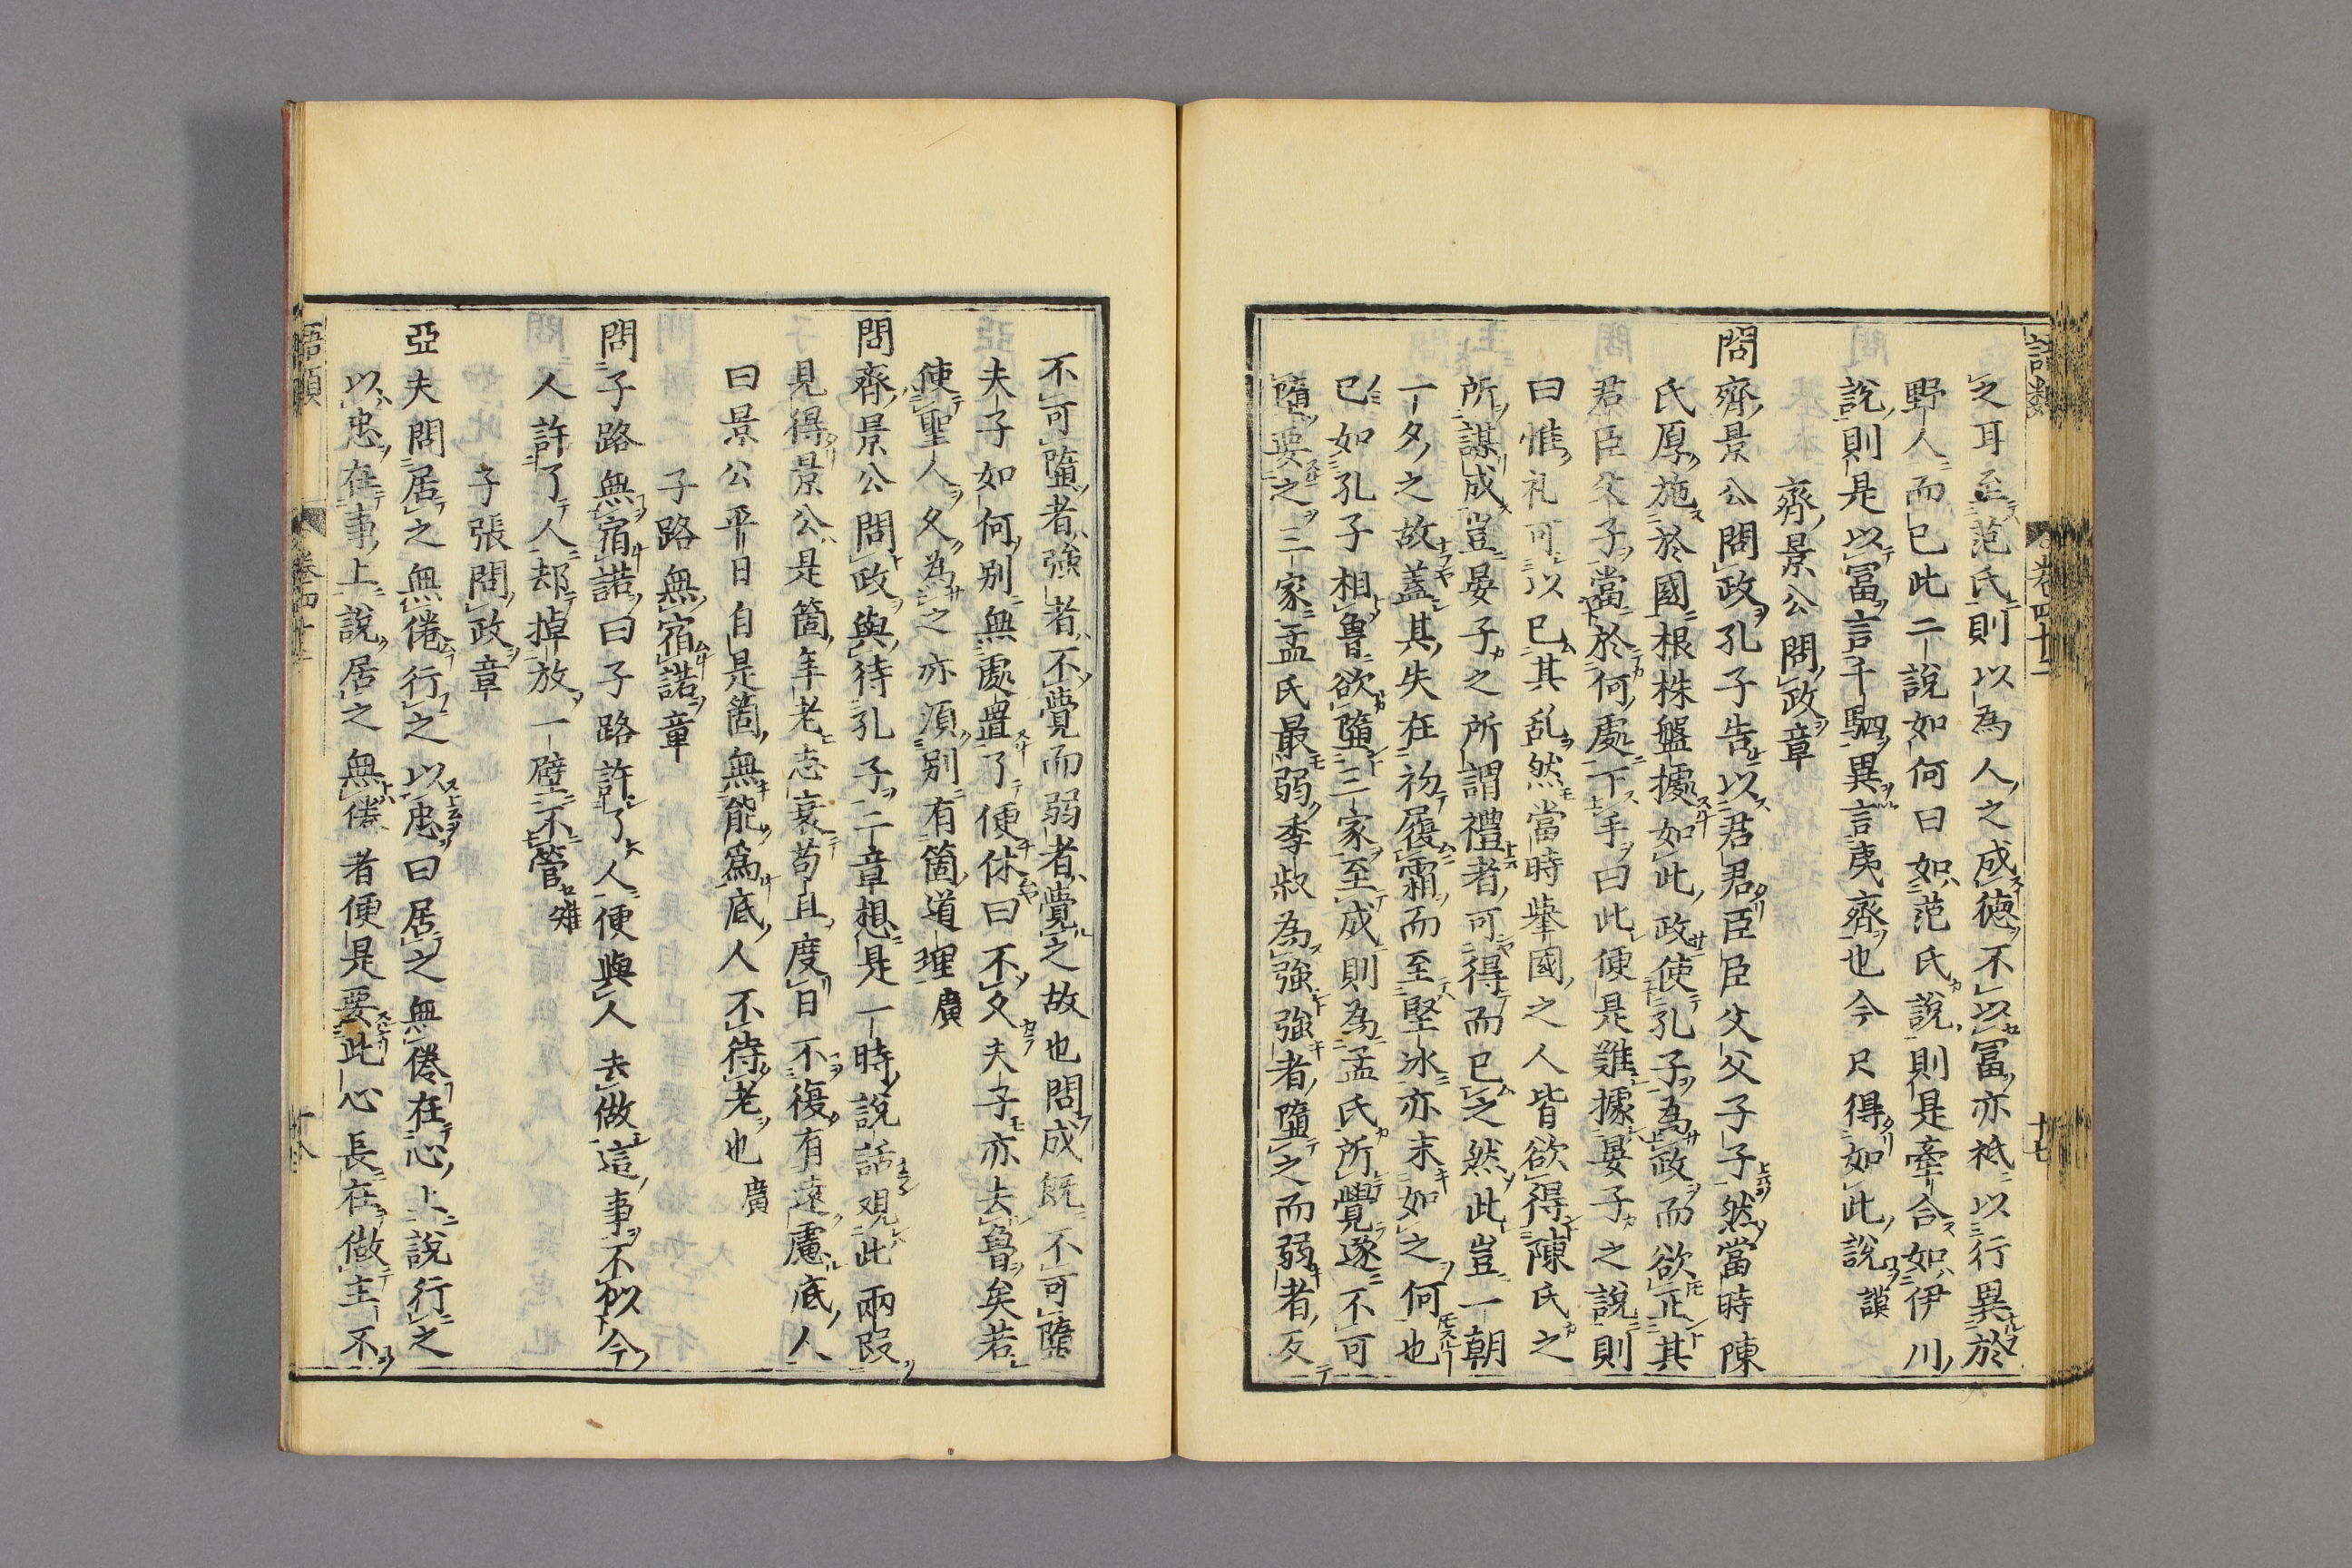 語類 卷四十二 十七
之耳至范氏則以為人之成德不以冨亦祗以行異於
野人而已此二說如何曰如范氏說則是牽合如伊川
說則是以冨言千駟異言夷齊也今只得如此說 謨
齊景公問政章
問齊景公問政孔子告以君君臣臣父父子子然當時陳
氏厚施於國根株盤據如此政使孔子為政而欲正其
君臣父子當於何處下手曰此便是難據晏子之說則
曰惟礼可以已其乱然當時舉國之人皆欲得陳氏之
所謀成豈晏子之所謂禮者可得而已之然此豈一朝
一夕之故蓋其失在初履霜而至堅冰亦末如之何也
已如孔子相魯欲墮三家至成則為孟氏所覺遂不可
墮要之三家孟氏最弱季叔為強強者墮之而弱者反
不可墮者強者不覺而弱者覺之故也問成既不可墮
夫子如何別無處置了便休曰不久夫子亦去魯矣若
使聖人久為之亦須別有箇道理 廣
問齊景公問政與待孔子二章想是一時說話觀此兩段
見得景公是箇年老志衰苟且度日不復有遠慮底人
曰景公平日自是箇無能為底人不待老也 廣
子路無宿諾章
問子路無宿諾曰子路許了人便與人去做這事不似今
人許了人却掉放一壁不管 雉
子張問政章
亞夫問居之無倦行之以忠曰居之無倦在心上說行之
以忠在事上說居之無倦者便是要此心長在做主不
語類 卷四十二 十八